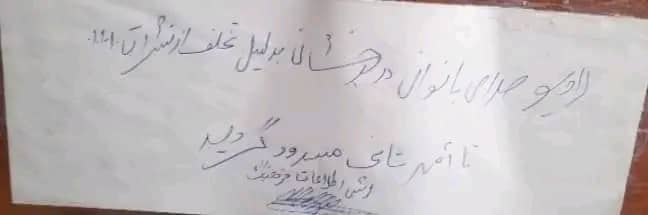 رادیو صدای بانوان در بدخشان بدلیل تخلف از نشرات ا.ا.ا
تا امر ثانی مسدود گردید
اطلاعات و فرهنگ